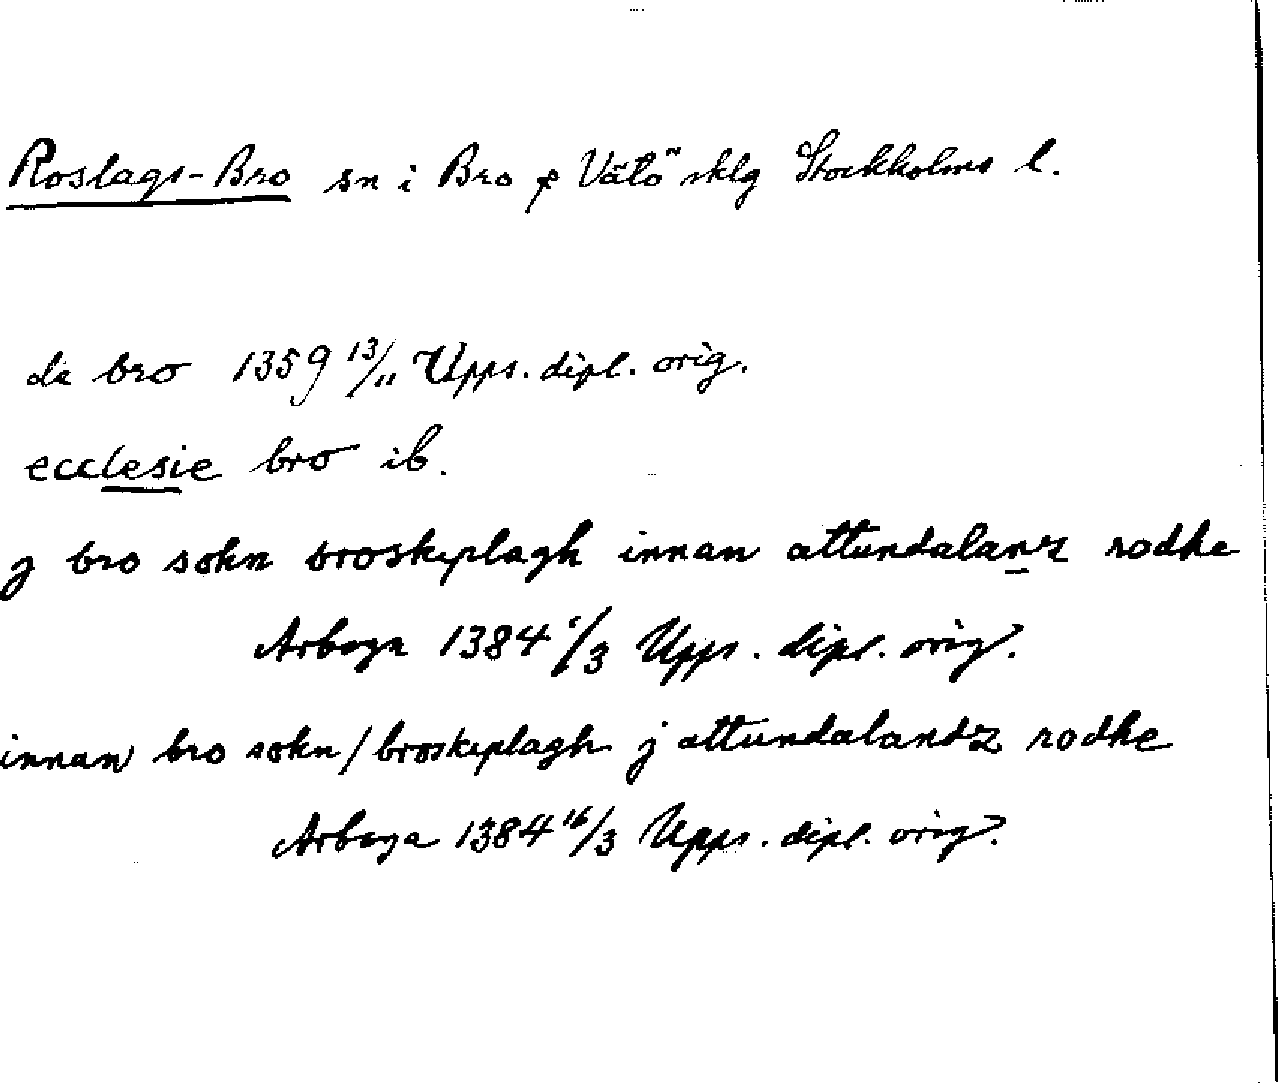 Roslags-Bro sn i Bro o Vätö sklg Stockholms l.
de bro 1359 13/11 Upps. dipl. orig.
ecclesie bro ib.
j bro sokn broskeplagh innan attundalanz rodhe
Arboga 1384 /3 Upps. dipl. orig.
innan bro sokn / broskeplagh j attundalandz rodhe
Arboga 1384 16/3 Upps. dipl. orig.